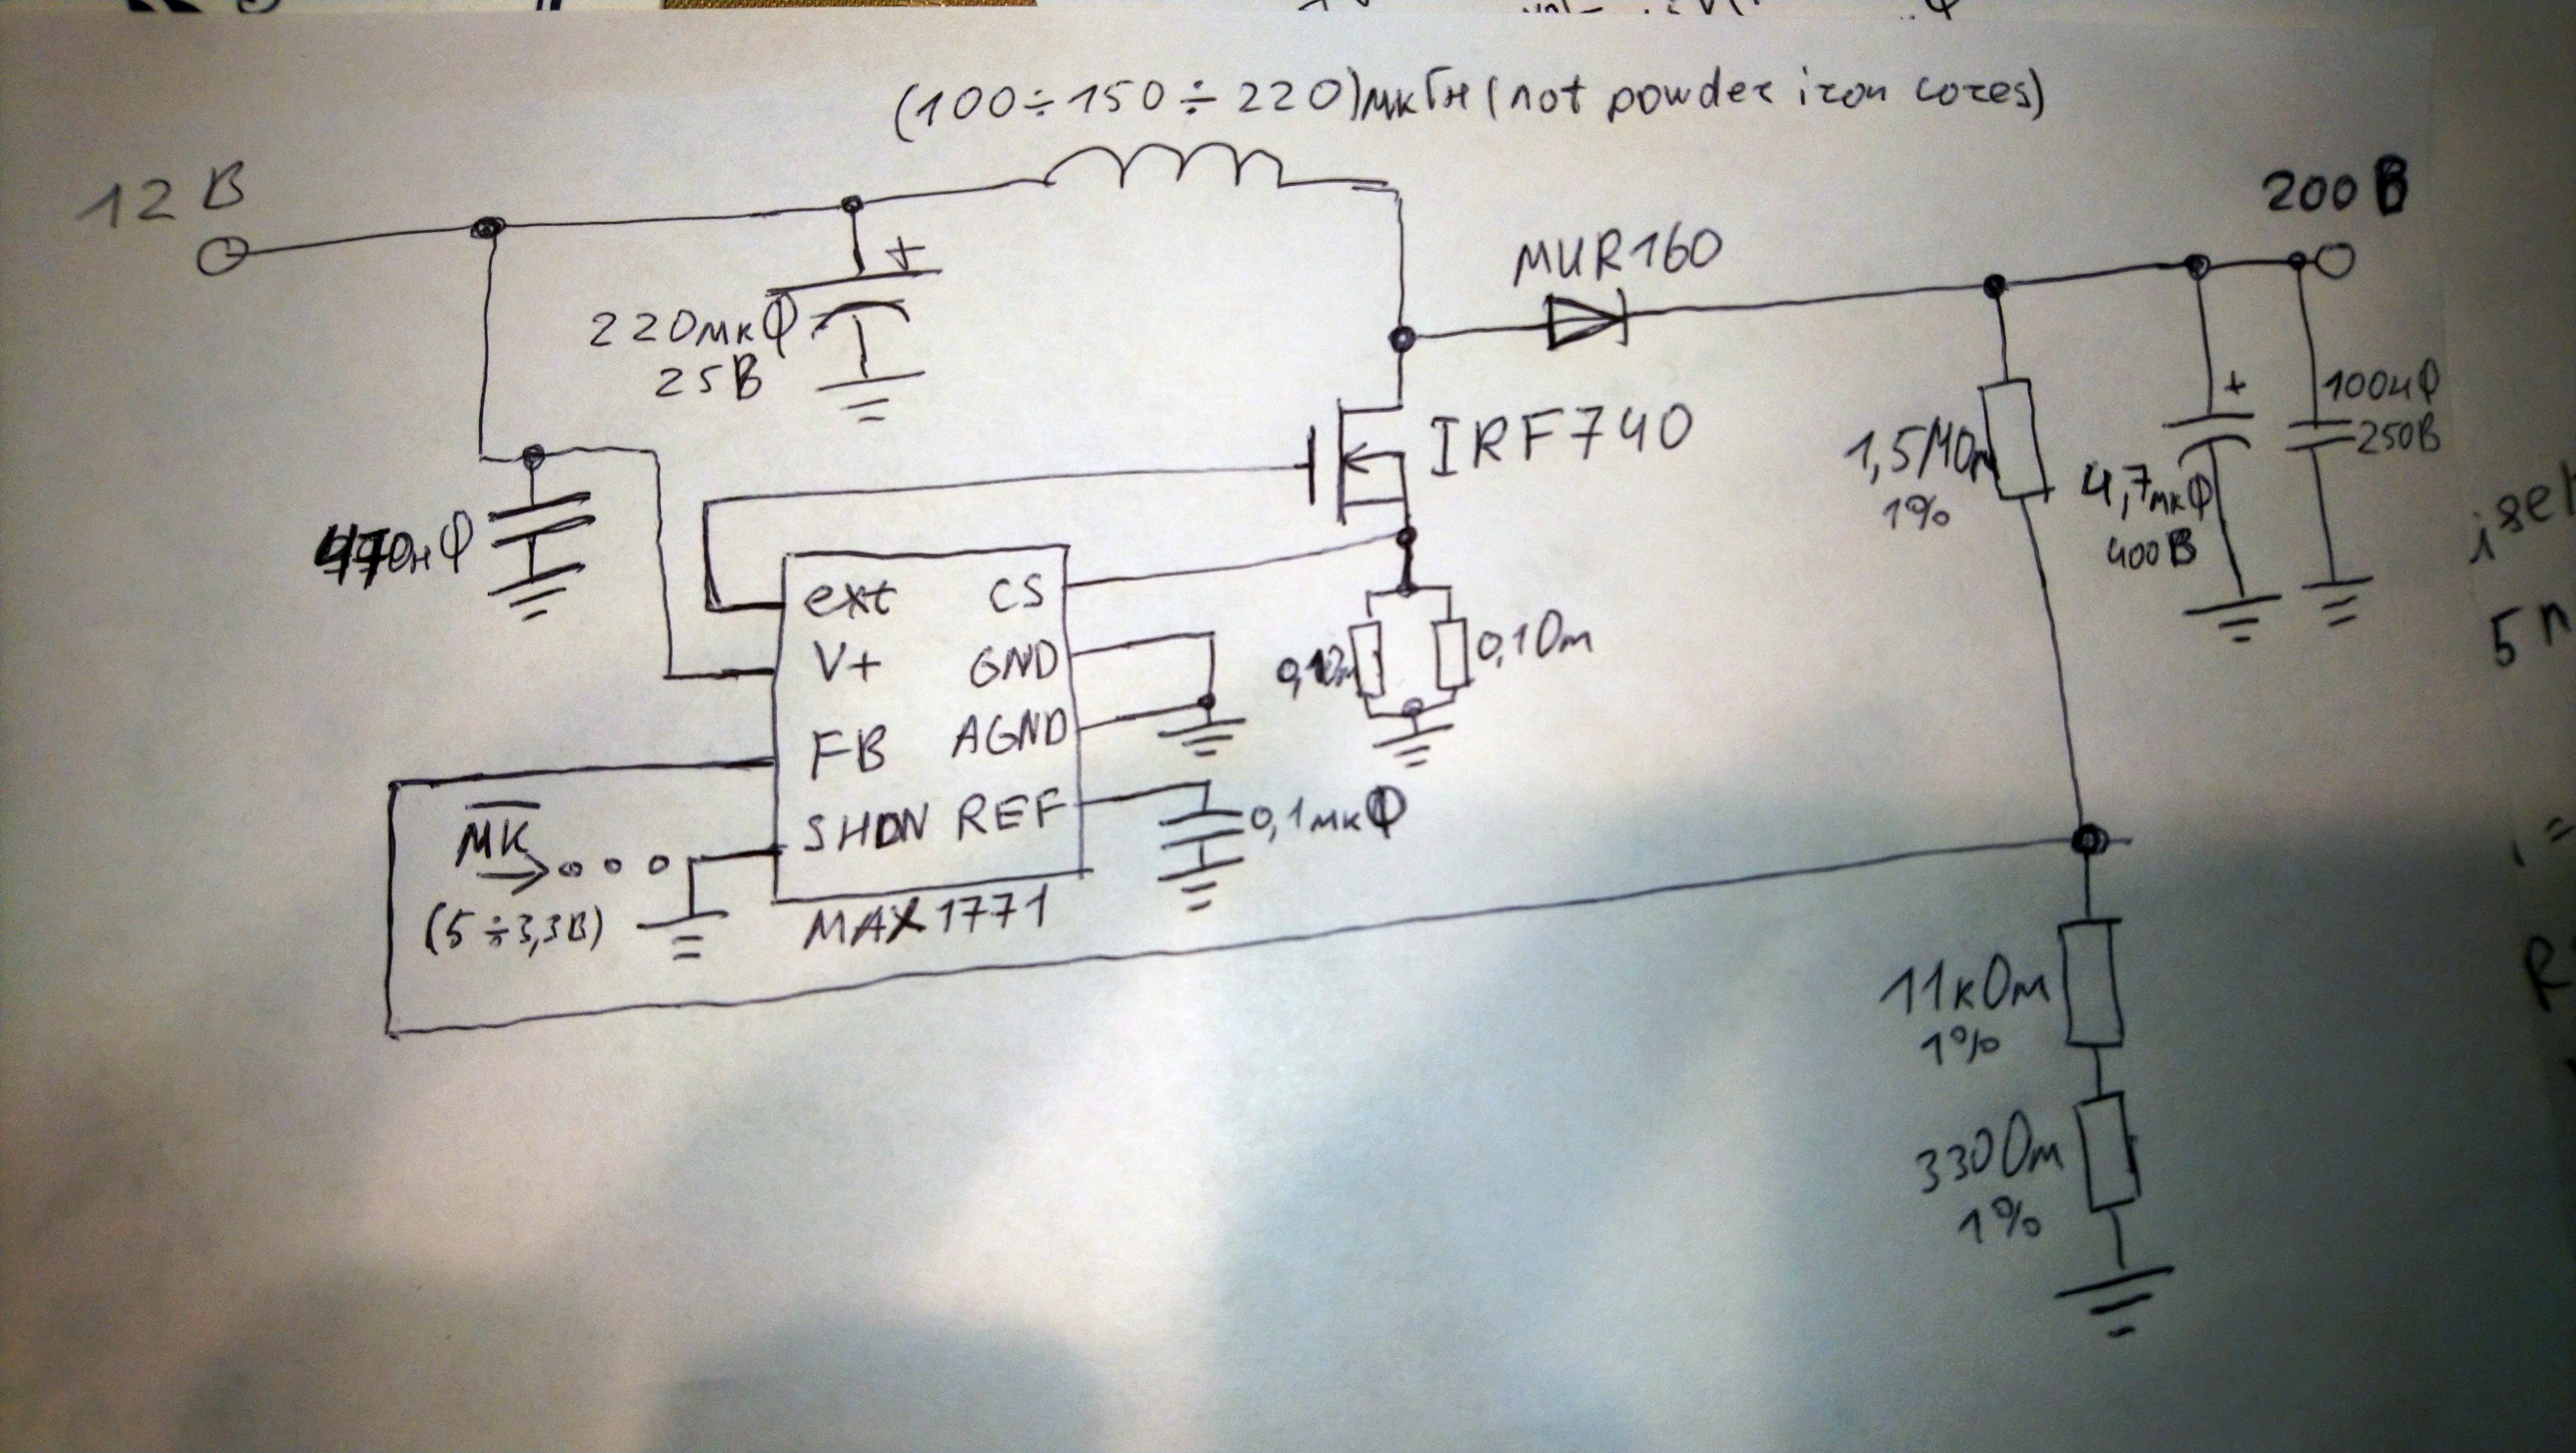 (100÷150÷220)мкГн (not powder iron cores)
12 В
200 В
MUR160
220мкФ
25В
+
IRF740
+
100нФ
250В
1,5МОм
1%
4,7мкФ
400В
470нФ
ext
CS
V+
GND
0,1Ом
FB
AGND
SHDN
REF
0,1мкФ
МК
(5÷3,3В)
MAX1771
11кОм
1%
330Ом
1%
5
R